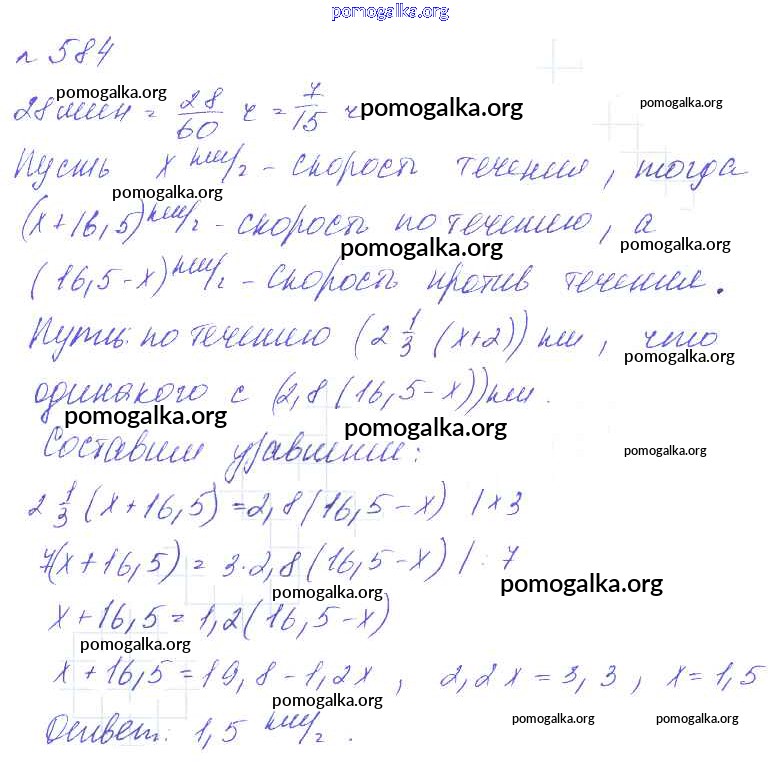 pomogalka.org
n 584
28 мин = 28/60 ч = 7/15 ч
pomogalka.org pomogalka.org pomogalka.org
Пусть x км/ч - скорость течения, тогда
pomogalka.org
(x+16,5) км/ч - скорость по течению, а
pomogalka.org pomogalka.org
(16,5-x) км/ч - скорость против течения.
Путь по течению (2 1/3 (x+2)) км, что
pomogalka.org
одинакого с (2,8 (16,5-x)) км.
pomogalka.org pomogalka.org
Составим уравнение:
pomogalka.org
2 1/3 (x+16,5) = 2,8 (16,5-x) | x 3
7(x+16,5) = 3·2,8 (16,5-x) | : 7
pomogalka.org pomogalka.org
x+16,5 = 1,2 (16,5-x)
pomogalka.org
x+16,5 = 19,8-1,2x, 2,2x = 3,3, x = 1,5
pomogalka.org
Ответ: 1,5 км/ч.
pomogalka.org pomogalka.org